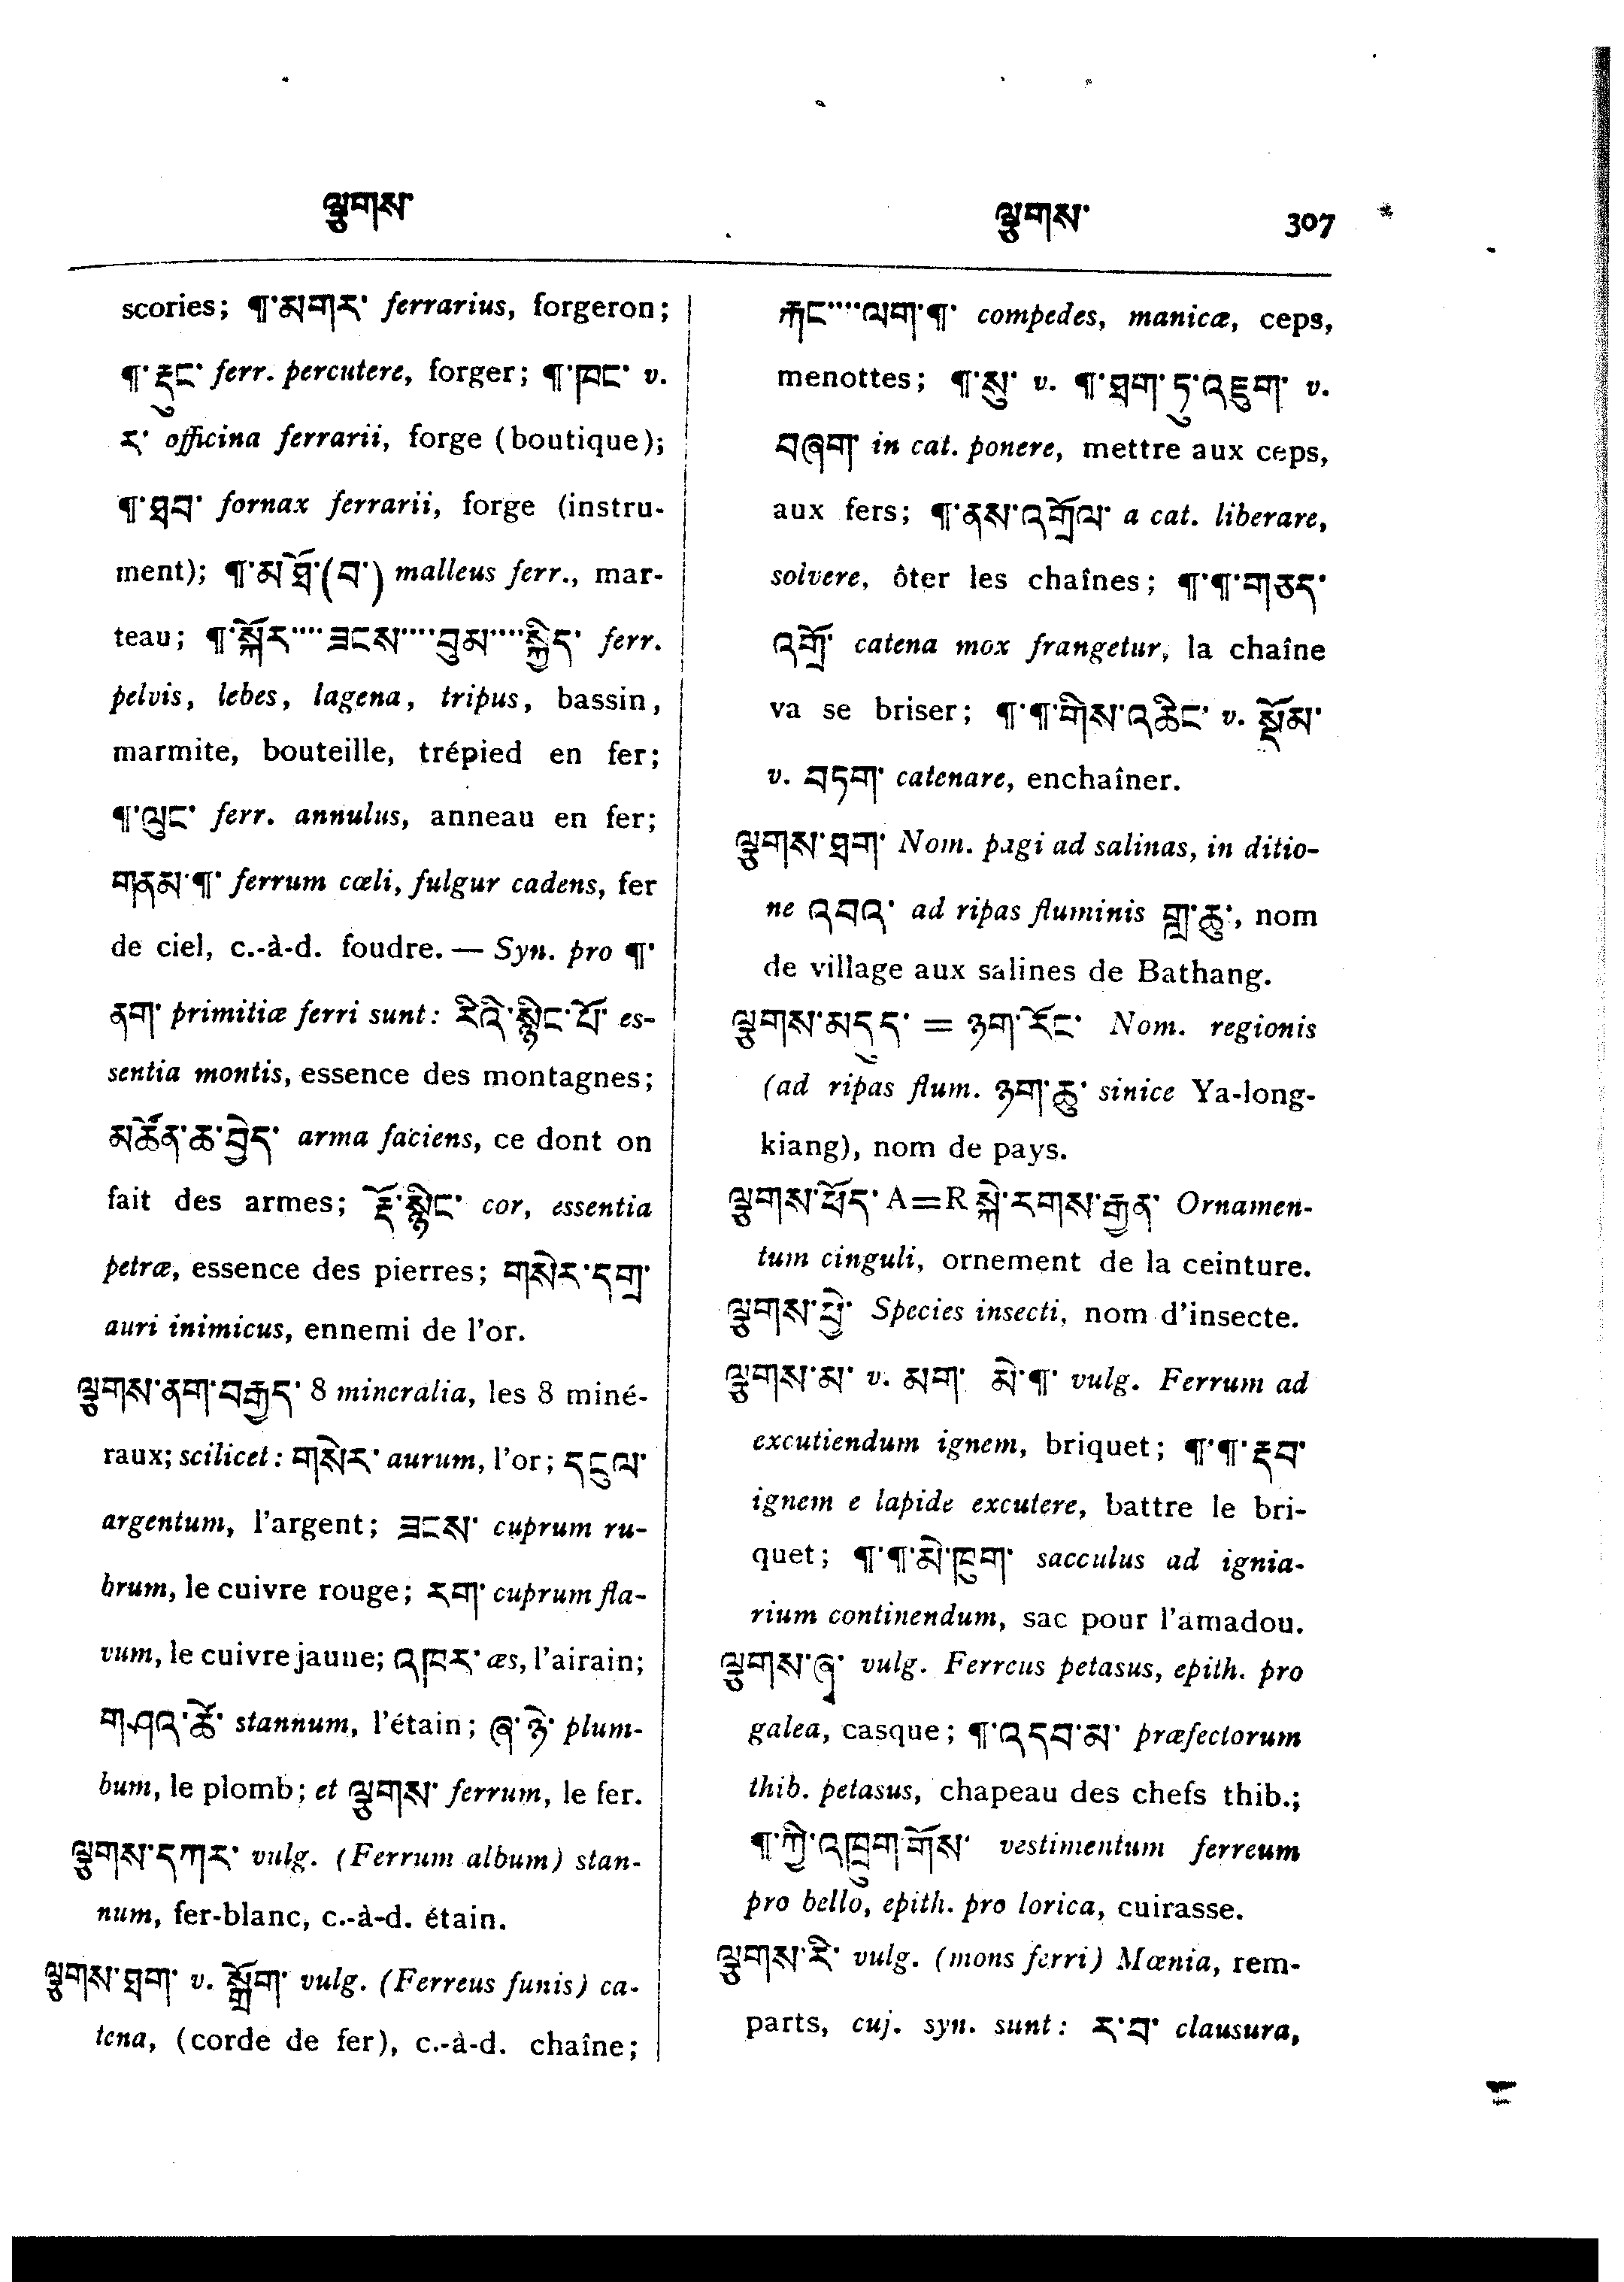 ལྕགས་
ལྕགས་ 307
scories; ¶་མགར་ ferrarius, forgeron;
¶་རྡུང་ ferr. percutere, forger; ¶་ཁང་ v.
ར་ officina ferrarii, forge (boutique);
¶་ཐབ་ fornax ferrarii, forge (instru-
ment); ¶་མཐོ་(བ་) malleus ferr., mar-
teau; ¶་སྐོར་་་་ཟངས་་་་བུམ་་་་སྐྱིད་ ferr.
pelvis, lebes, lagena, tripus, bassin,
marmite, bouteille, trépied en fer;
¶་ལུང་ ferr. annulus, anneau en fer;
གནམ་¶་ ferrum cœli, fulgur cadens, fer
de ciel, c.-à-d. foudre. — Syn. pro ¶་
ནག་ primitiæ ferri sunt: རིའི་སྙིང་པོ་ es-
sentia montis, essence des montagnes;
མཚོན་ཆ་བྱེད་ arma faciens, ce dont on
fait des armes; རྡོ་སྙིང་ cor, essentia
petræ, essence des pierres; གསེར་དགྲ་
auri inimicus, ennemi de l'or.
ལྕགས་ནག་བརྒྱད་ 8 mineralia, les 8 miné-
raux; scilicet: གསེར་ aurum, l'or; དངུལ་
argentum, l'argent; ཟངས་ cuprum ru-
brum, le cuivre rouge; རག་ cuprum fla-
vum, le cuivre jaune; འཁར་ æs, l'airain;
གཤའ་ཚེ་ stannum, l'étain; ཞ་ཉེ་ plum-
bum, le plomb; et ལྕགས་ ferrum, le fer.
ལྕགས་དཀར་ vulg. (Ferrum album) stan-
num, fer-blanc, c.-à-d. étain.
ལྕགས་ཐག་ v. སྒྲོག་ vulg. (Ferreus funis) ca-
tena, (corde de fer), c.-à-d. chaîne;
རྐང་་་་ལག་¶་ compedes, manicæ, ceps,
menottes; ¶་སྲུ་ v. ¶་ཐག་ཏུ་འཇུག་ v.
བཞག་ in cat. ponere, mettre aux ceps,
aux fers; ¶་ནས་འགྲོལ་ a cat. liberare,
solvere, ôter les chaînes; ¶་¶་གཅད་
འགྲོ་ catena mox frangetur, la chaîne
va se briser; ¶་¶་གིས་འཆིང་ v. སྡོམ་
v. བཏག་ catenare, enchaîner.
ལྕགས་ཐག་ Nom. pagi ad salinas, in ditio-
ne འབའ་ ad ripas fluminis ཟླ་ཆུ་, nom
de village aux salines de Bathang.
ལྕགས་མདུད་ = ཉག་རོང་ Nom. regionis
(ad ripas flum. ཉག་ཆུ་ sinice Ya-long-
kiang), nom de pays.
ལྕགས་ཕོད་ A=R སྐེ་རགས་རྒྱན་ Ornamen-
tum cinguli, ornement de la ceinture.
ལྕགས་བྱེ་ Species insecti, nom d'insecte.
ལྕགས་མ་ v. མག་ མེ་¶་ vulg. Ferrum ad
excutiendum ignem, briquet; ¶་¶་རྡབ་
ignem e lapide excutere, battre le bri-
quet; ¶་¶་མེ་ཁུག་ sacculus ad ignia-
rium continendum, sac pour l'amadou.
ལྕགས་ཞྭ་ vulg. Ferreus petasus, epith. pro
galea, casque; ¶་འདབ་མ་ præfectorum
thib. petasus, chapeau des chefs thib.;
¶་ཀྱི་འཁྲུག་གོས་ vestimentum ferreum
pro bello, epith. pro lorica, cuirasse.
ལྕགས་རི་ vulg. (mons ferri) Mœnia, rem-
parts, cuj. syn. sunt: ར་བ་ clausura,